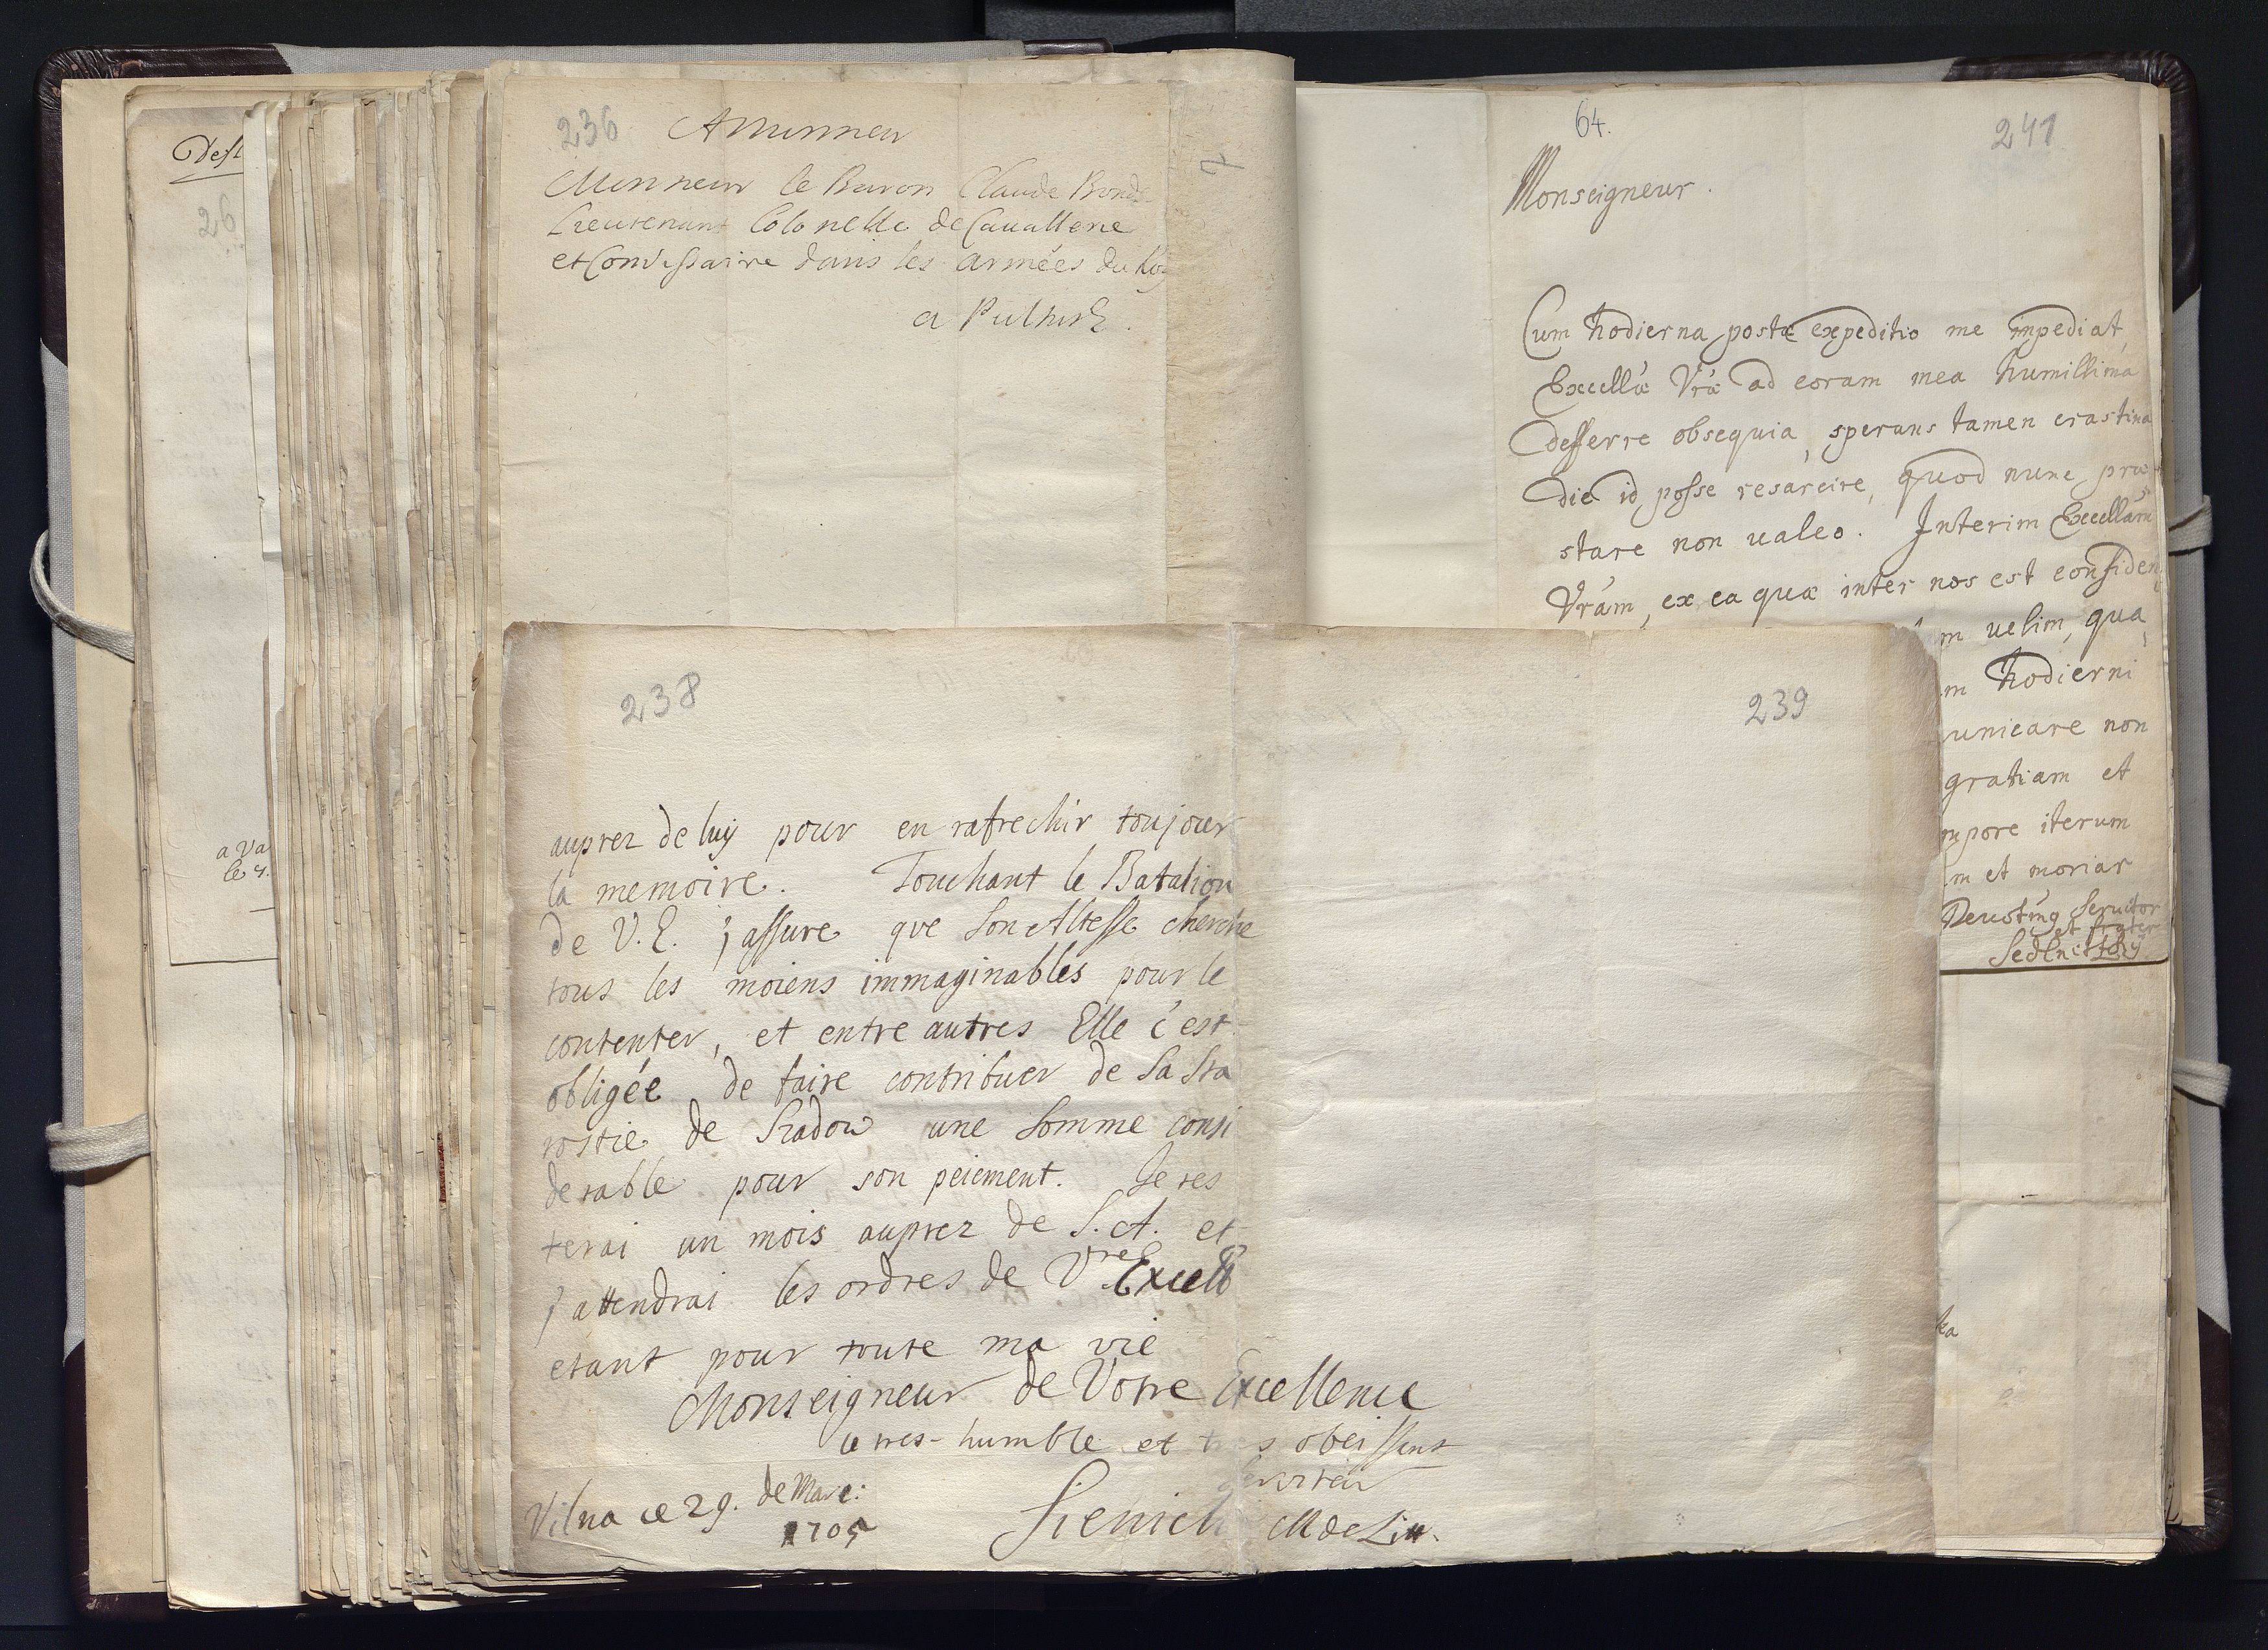 Dest
26
a Va
le 4.
236
A Monsieur
Monsieur le Baron Claude Bonde
Lieutenant Colonelle de Cauallerie
et Comissaire dans les armées du Roy
a Pultusk.
7
238
auprez de luy pour en rafrechir toujour
la memoire. Touchant le Batalion
de V. E. j assure que Son Altesse cherche
tous les moiens immaginables pour le
contenter, et entre autres Elle c'est
obligée de faire contribuer de Sa Sta
rostie de Szadow une Somme consi
derable pour son peiement. Je res
terai un mois auprez de S. A. et
j attendrai les ordres de Vre Excell
etant pour toute ma vie
Monseigneur de Votre Excellence
le tres-humble et tres obeissent
serviteur
Vilna ce 29. de Mare:
1705
Sienicki M de Lit.
239
64.
241
Monseigneur.
Cum hodierna postæ expeditio me impediat,
Excellæ Vræ ad coram mea humillima
defferre obsequia, sperans tamen crastina
die id posse resarcire, quod nunc præ
stare non ualeo. Interim Excellam
Vram, ex ea quæ inter nos est confiden
m uelim, qua
m hodierni
unicare non
gratiam et
mpore iterum
m et moriar
Deuotmg Seruitor
et frater
Sedlnitzky
ka